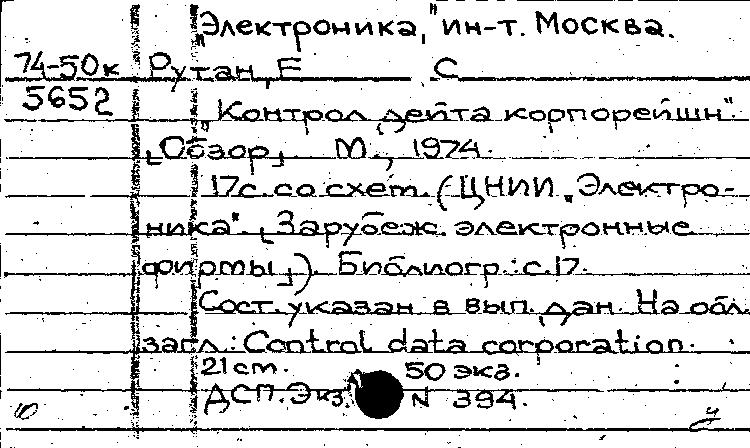 "Электроника," ин-т. Москва.
74-50к Рутан, Е С
5652 "Контрол дейта корпорейшн"
[Обзор] М., 1974.
17с. со схем. (ЦНИИ "Электро-
ника". [Зарубеж. электронные
фирмы]). Библиогр.: с.17.
Сост. указан в вып. дан. На обл.
загл.: Control data corporation.
21 cm. 50 экз.
ДСП. Экз. N 394.
10